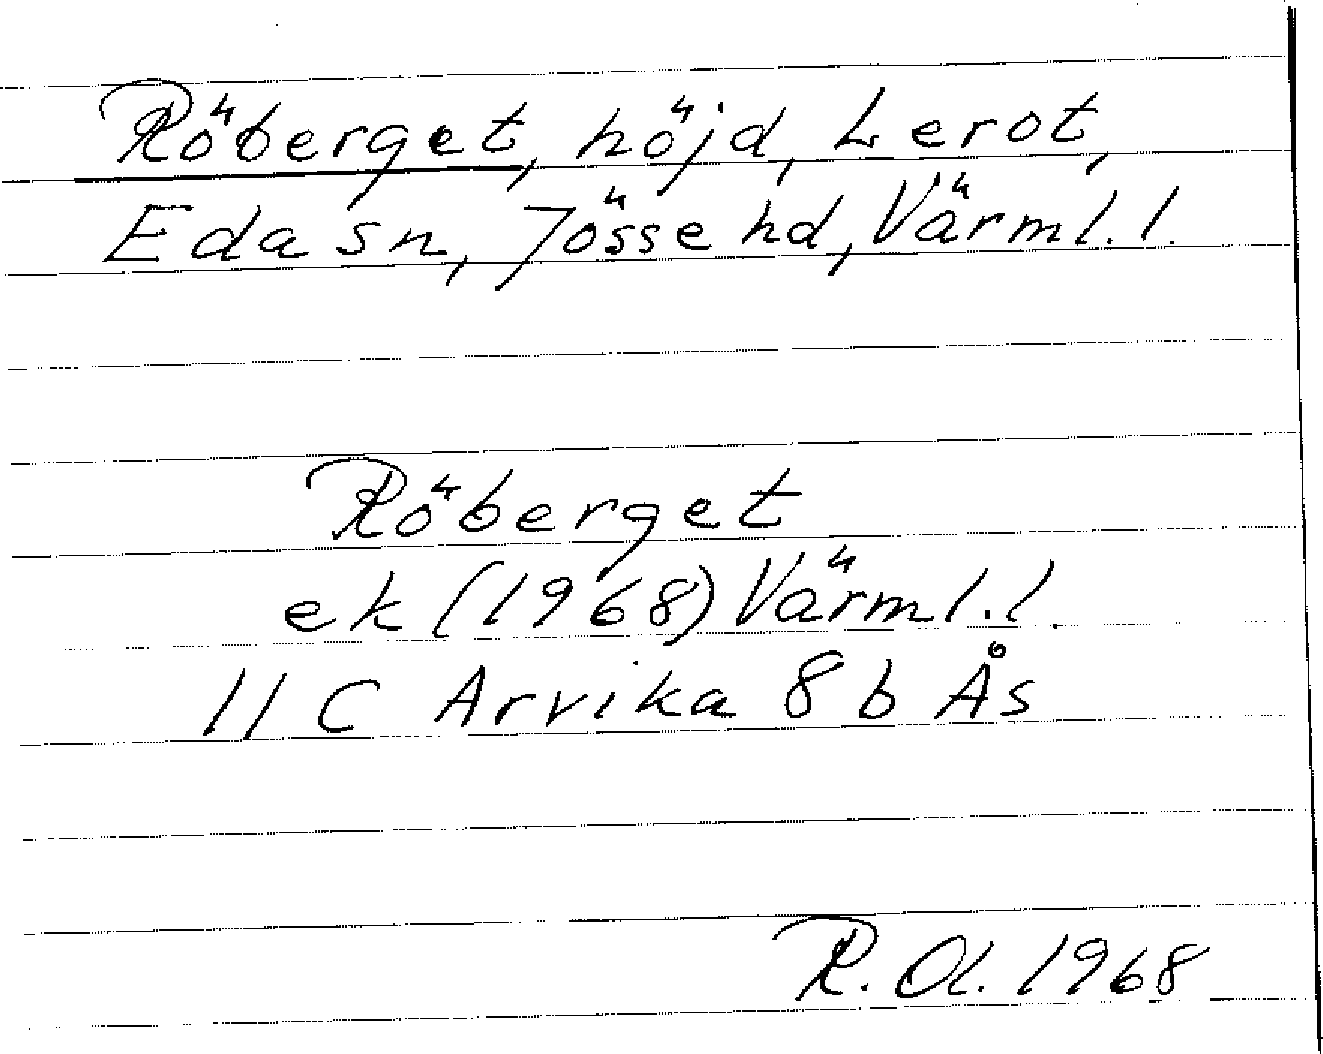 Röberget, höjd, Lerot,
Eda sn, Jösse hd, Värml. l.
Röberget
ek (1968) Värml. l.
11 C Arvika 8 b Ås
R. Ol. 1968